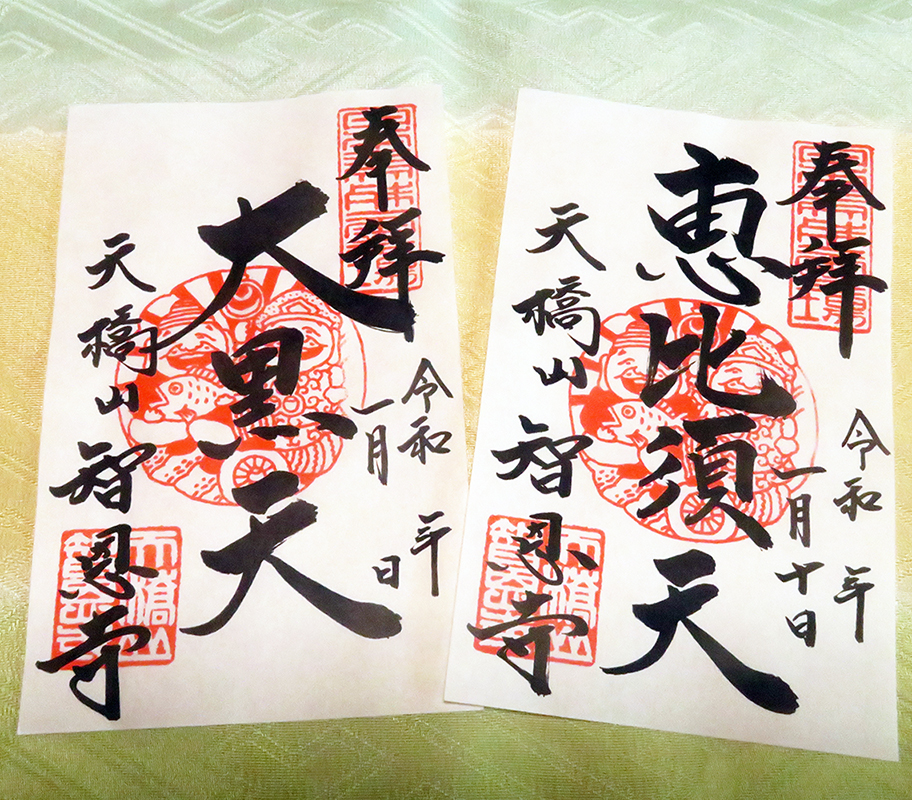 奉拝
大黒天
令和 年
一月 日
天橋山
智恩寺
奉拝
恵比須天
令和 年
一月十日
天橋山
智恩寺